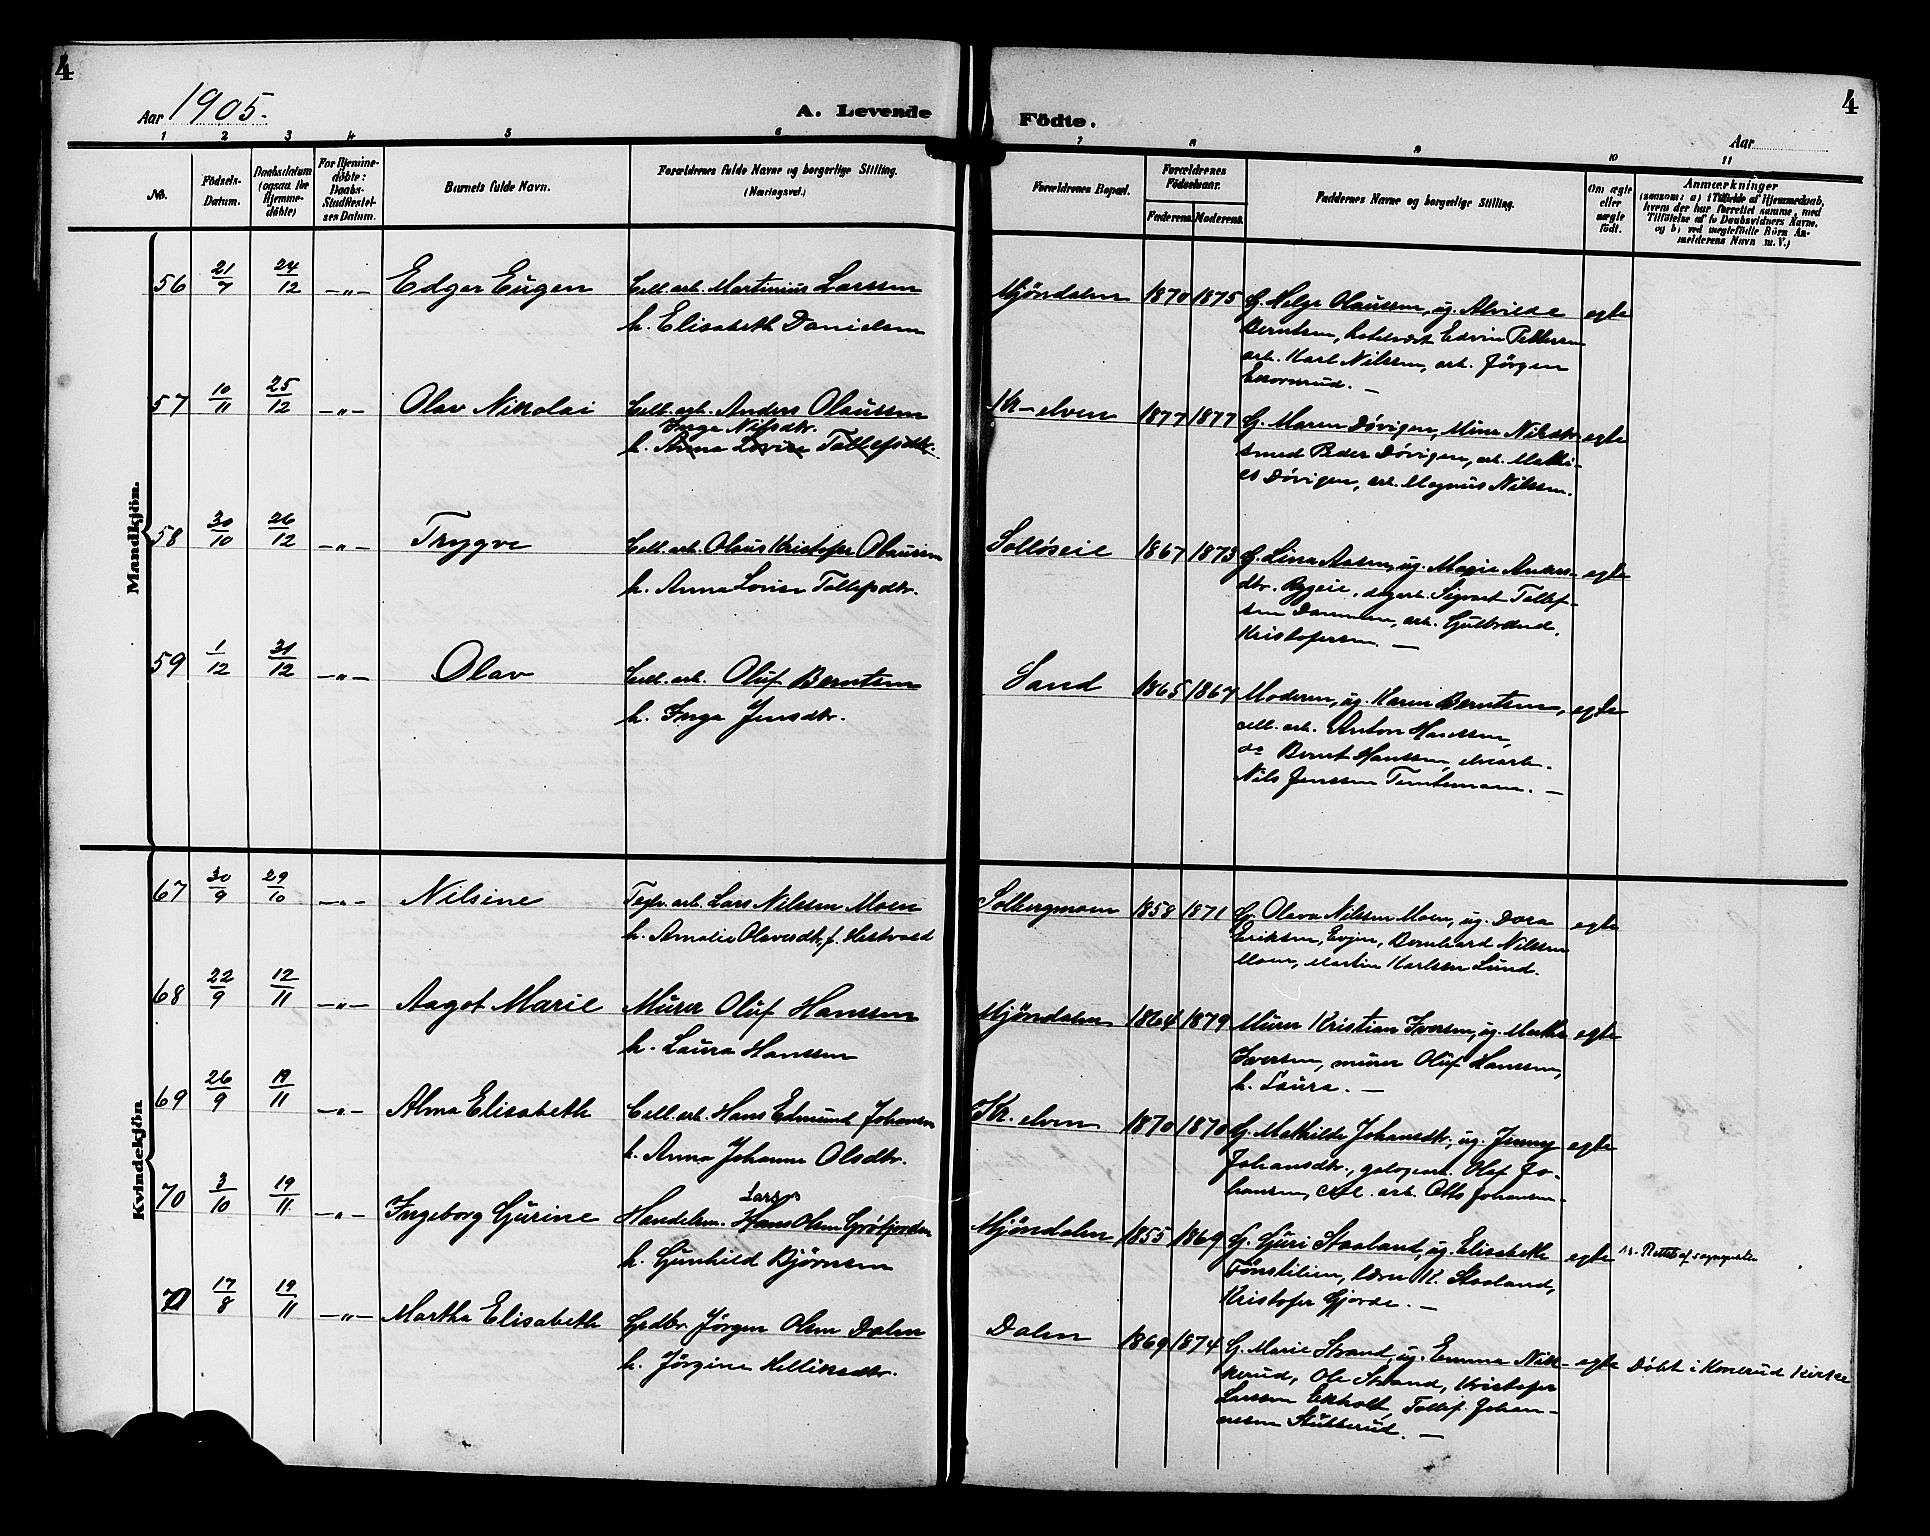 4
4
Aar 1905.
A. Levende Födte.
Aar
1 2 3 4 5 6 7 8 9 10 11
No.
Födsels-Datum.
Daabsdatum (ogsaa for Hjemme-döbte)
For Hjemme-döbte: Daabs-Stadfæstel-ses Datum.
Barnets fulde Navn.
Forældrenes fulde Navne og borgerlige Stilling. (Næringsvei.)
Forældrenes Bopæl.
Forældrenes Födselsaar.
Faderens. Moderens.
Faddernes Navne og borgerlige Stilling.
Om ægte eller uægte födt.
Anmærkninger
(saasom: a) i Tilfælde af Hjemmedaab, hvem der har forrettet samme, med Tilföielse af to Daabsvidners Navne, og b) ved uægtefödte Börn An-melderens Navn m. V.)
Mandkjön.
56 21/7 24/12 -"- Edgar Eugen
Cell. arb. Martinius Larssen
h. Elisabeth Danielsen
Mjöndalen 1870 1875
G. Helga Olaussen, ug. Alvilde
Berntsen, Edvin Pettersen
arb. Karl Nilssen, arb. Jörgen
Ekornrud. —
egte
57 10/11 25/12 -"- Olav Nikolai
Cell. arb. Anders Olaussen
Inga Nilsdtr.
h. Anna Lovise Tollefsdtr.
Kr-elven 1877 1877
G. Maren Døvigen, Mina Nilsdtr
smed Peder Døvigen, arb. Mathi-
as Døvigen, arb. Magnus Nilssen.
egte
58 30/10 26/12 -"- Trygve
Cell. arb. Olaus Kristofer Olaussen
h. Anna Lovise Tollefsdtr.
Solløseie 1867 1873
G. Lina Aasen, ug. Magie Anders-
dtr. Bygeie, dagarb. Sigvart Tollef-
sen Dammen, arb. Gulbrand
Kristofersen. —
egte
59 1/12 31/12 -"- Olav
Cell. arb. Oluf Berntsen
h. Inga Jensdtr.
Sand 1865 1867
Moderen, ug. Karen Berntsen,
cell. arb. Anton Hanssen,
do Bernt Hanssen, elvearb.
Nils Jenssen Temtemoen. —
egte
Kvindekjön
67 30/9 29/10 -"- Nilsine
Teglv. arb. Lars Nilssen Moen
h. Amalie Olavesdtr, f. Hestvold
Solbergmoen 1858 1871
G. Olava Nilssen Moen, ug. Dora
Eriksen, Evjen, Bernhard Nilssen
Moen, Martin Karlsen Lund.
egte
68 22/9 12/11 -"- Aagot Marie
Murer Oluf Hanssen
h. Laura Hanssen
Mjöndalen 1864 1879
Murer Kristian Iversen, ug. Marthe
Iversen, murer Oluf Hanssen,
h. Laura. —
egte
69 26/9 19/11 -"- Alma Elisabeth
Cell. arb. Hans Edmund Johansen
h. Anna Johanne Olsdtr.
Kr. elven 1870 1870
G. Mathilde Johansdtr, ug. Jenny
Johansdtr., Olaf Jo-
hansen, cell. arb. Otto Johansen-
egte
70 3/10 19/11 -"- Ingeborg Gurine
Lars
Handelsm. Hans Olsen Grötfjorden
h. Gunhild Bjørnsen
Mjöndalen 1855 1869
G. Guri Staaland, ug. Elisabeth
Tönslilien, lærer K. Staaland,
Kristofer Gjorde. —
egte
Rettet af sogneprest
71 17/8 19/11 -"- Martha Elisabeth
Grdbr. Jörgen Olsen Dalen
h. Jörgine Kelliksdtr.
Dalen 1869 1874
G. Marie Strand, ug. Emma Nils-
kerud, Ole Strand, Kristofer
Larssen Ekholt, Tollef Johan-
nessen Stubberud. —
egte
Döbt i Konerud Kirke